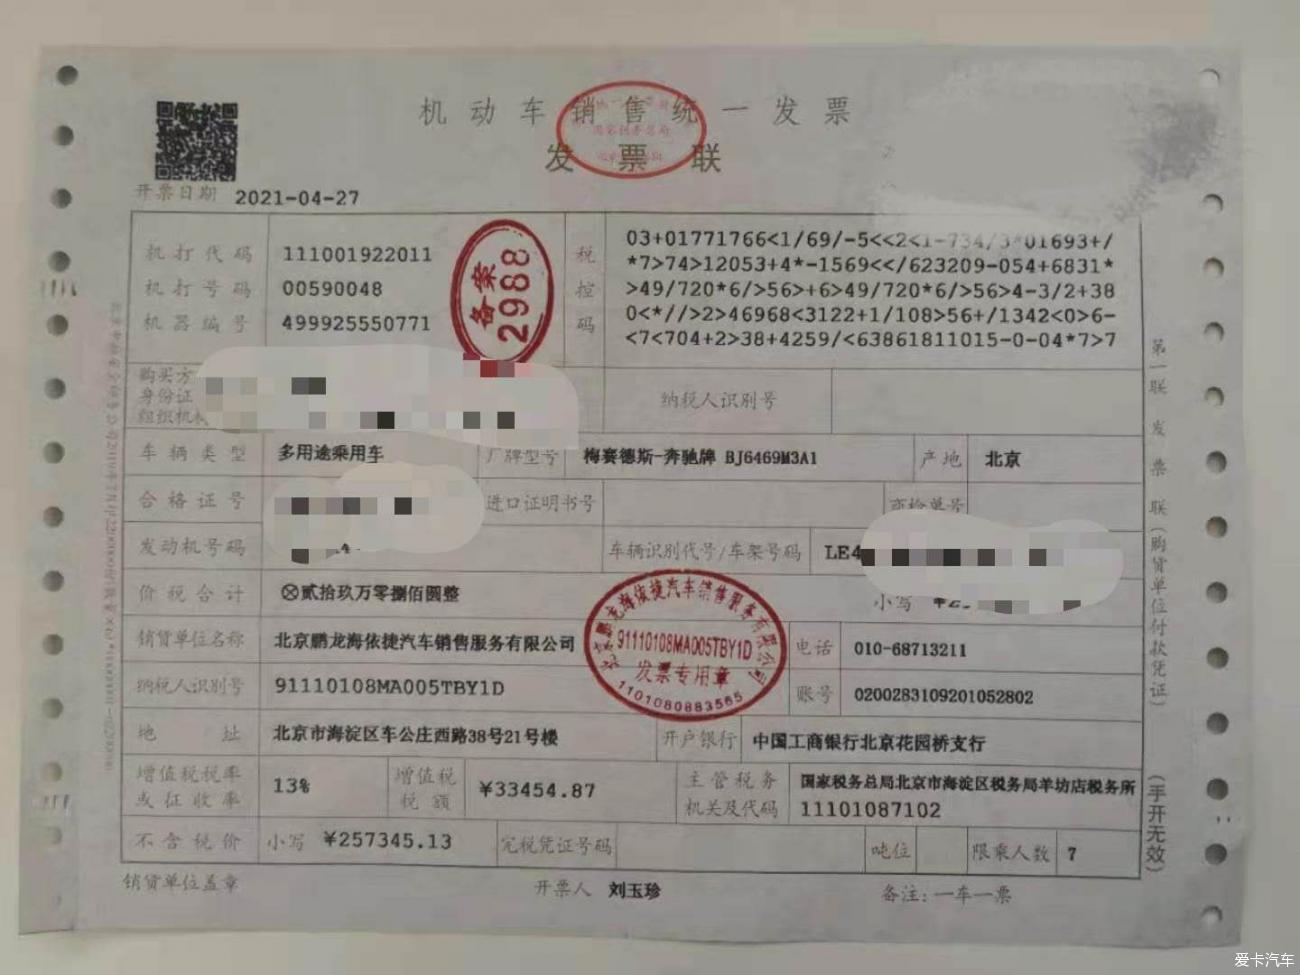 机动车销售统一发票
发票联
开票日期 2021-04-27
机打代码 111001922011
机打号码 00590048
机器编号 499925550771
备案
2988
税控码
03+01771766<1/69/-5<<2<1-734/3*01693+/
*7>74>12053+4*-1569<</623209-054+6831*
>49/720*6/>56>+6>49/720*6/>56>4-3/2+38
0<*//>2>46968<3122+1/108>56+/1342<0>6-
<7<704+2>38+4259/<63861811015-0-04*7>7
购买方
身份证
组织机构
纳税人识别号
车辆类型 多用途乘用车 厂牌型号 梅赛德斯-奔驰牌 BJ6469M3A1 产地 北京
合格证号 进口证明书号 商检单号
发动机号码 车辆识别代号/车架号码 LE4
价税合计 ⊗贰拾玖万零捌佰圆整 小写
销货单位名称 北京鹏龙海依捷汽车销售服务有限公司 电话 010-68713211
纳税人识别号 91110108MA005TBY1D 账号 0200283109201052802
北京鹏龙海依捷汽车销售服务有限公司
91110108MA005TBY1D
发票专用章
1101080883565
地址 北京市海淀区车公庄西路38号21号楼 开户银行 中国工商银行北京花园桥支行
增值税税率或征收率 13% 增值税税额 ¥33454.87 主管税务机关及代码 国家税务总局北京市海淀区税务局羊坊店税务所
11101087102
不含税价 小写 ¥257345.13 完税凭证号码 吨位 限乘人数 7
销货单位盖章 开票人 刘玉珍 备注:一车一票
第一联 发票联(购货单位付款凭证)
(手开无效)
爱卡汽车